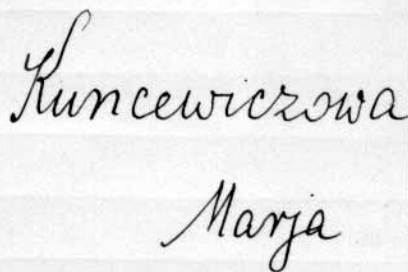 Kuncewiczowa
Marja